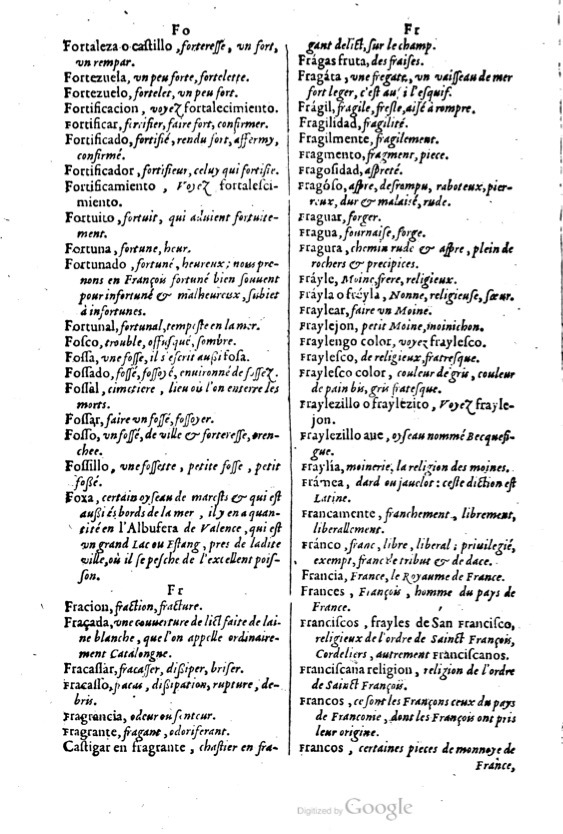 Fo
Fortaleza o castillo, forteresse, un fort,
vn rempar.
Fortezuela, vn peu forte, fortelette.
Fortezuelo, fortelet, vn peu fort.
Fortificacion, voyez fortalecimiento.
Fortificar, fortifier, faire fort, confirmer.
Fortificado, fortifié, rendu fort, affermy,
confirmé.
Fortificador, fortifieur, celuy qui fortifie.
Fortificamiento, Voyez fortaleſci-
miento.
Fortuito, fortuit, qui aduient fortuite-
ment.
Fortuna, fortune, heur.
Fortunado, fortuné, heureux; nous pre-
nons en François fortuné bien souuent
pour infortuné & malheureux, subiet
à infortunes.
Fortunal, fortunal, tempeste en la mer.
Foſco, trouble, offusqué, sombre.
Foſſa, vne fosse, il s'escrit außi foſa.
Foſſado, fossé, fossoyé, enuironné de fossez.
Foſſàl, cimetiere, lieu où l'on enterre les
morts.
Foſſar, faire vn fossé, fossoyer.
Foſſo, vn fossé, de ville & forteresse, tren-
chee.
Foſſillo, vne fossette, petite fosse, petit
foßé.
Foxa, certain oyseau de marests & qui est
außi és bords de la mer, il y en a quan-
tité en l'Albufera de Valence, qui est
vn grand Lac ou Estang, pres de ladite
ville, où il se pesche de l'excellent pois-
son.
Fr
Fracion, fraction, fracture.
Fraçada, vne couuerture de lict faite de lai-
ne blanche, que l'on appelle ordinaire-
ment Catalongne.
Fracaſſar, fracasser, dißiper, briser.
Fracaſſo, fracas, dißipation, rupture, de-
bris.
Fragrancia, odeur ou senteur.
Fragrante, fragant, odoriferant.
Caſtigar en fragrante, chastier en fra-
Fr
gant delict, sur le champ.
Frágas fruta, des fraises.
Fragáta, vne fregate, vn vaisseau de mer
fort leger, c'est außi l'esquif.
Frágil, fragile, fresle, aisé à rompre.
Fragilidad, fragilité.
Fragilmente, fragilement.
Fragmento, fragment, piece.
Fragoſidad, aspreté.
Fragóſo, aspre, desrompu, raboteux, pier-
reux, dur & malaisé, rude.
Fraguar, forger.
Fragua, fournaise, forge.
Fragura, chemin rude & aspre, plein de
rochers & precipices.
Fráyle, Moine, frere, religieux.
Fráyla o fréyla, Nonne, religieuse, sœur.
Fraylear, faire vn Moine.
Fraylejon, petit Moine, moinichon.
Fraylengo color, voyez frayleſco.
Frayleſco, de religieux, fratresque.
Frayleſco color, couleur de gris, couleur
de pain bis, gris fratesque.
Fraylezillo o fraylezico, Voyez frayle-
jon.
Fraylezillo aue, oyseau nommé Becquefi-
gue.
Fraylía, moinerie, la religion des moines.
Frámea, dard ou jauelot: ceste diction est
Latine.
Francamente, franchement, librement,
liberallement.
Fránco, franc, libre, liberal; priuilegié,
exempt, franc de tribut & de dace.
Francia, France, le Royaume de France.
Frances, François, homme du pays de
France.
Franciſcos, frayles de San Franciſco,
religieux de l'ordre de Sainct François,
Cordeliers, autrement Franciſcanos.
Franciſcana religion, religion de l'ordre
de Sainct François.
Francos, ce sont les Françons ceux du pays
de Franconie, dont les François ont pris
leur origine.
Francos, certaines pieces de monnoye de
France,
Digitized by Google